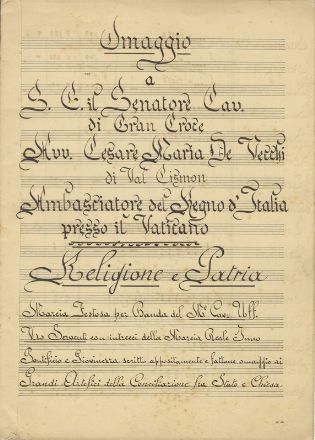 Omaggio
a
S. E. il Senatore Cav.
di Gran Croce
Avv. Cesare Maria De Vecchi
di Val Cismon
Ambasciatore del Regno d'Italia
presso il Vaticano
Religione e Patria
Marcia Festosa per Banda del M° Cav. Uff.
Serventi con intrecci della Marcia Reale Inno
Pontificio e Giovinezza scritti appositamente e fattone omaggio ai
Grandi Artefici della Conciliazione fra Stato e Chiesa